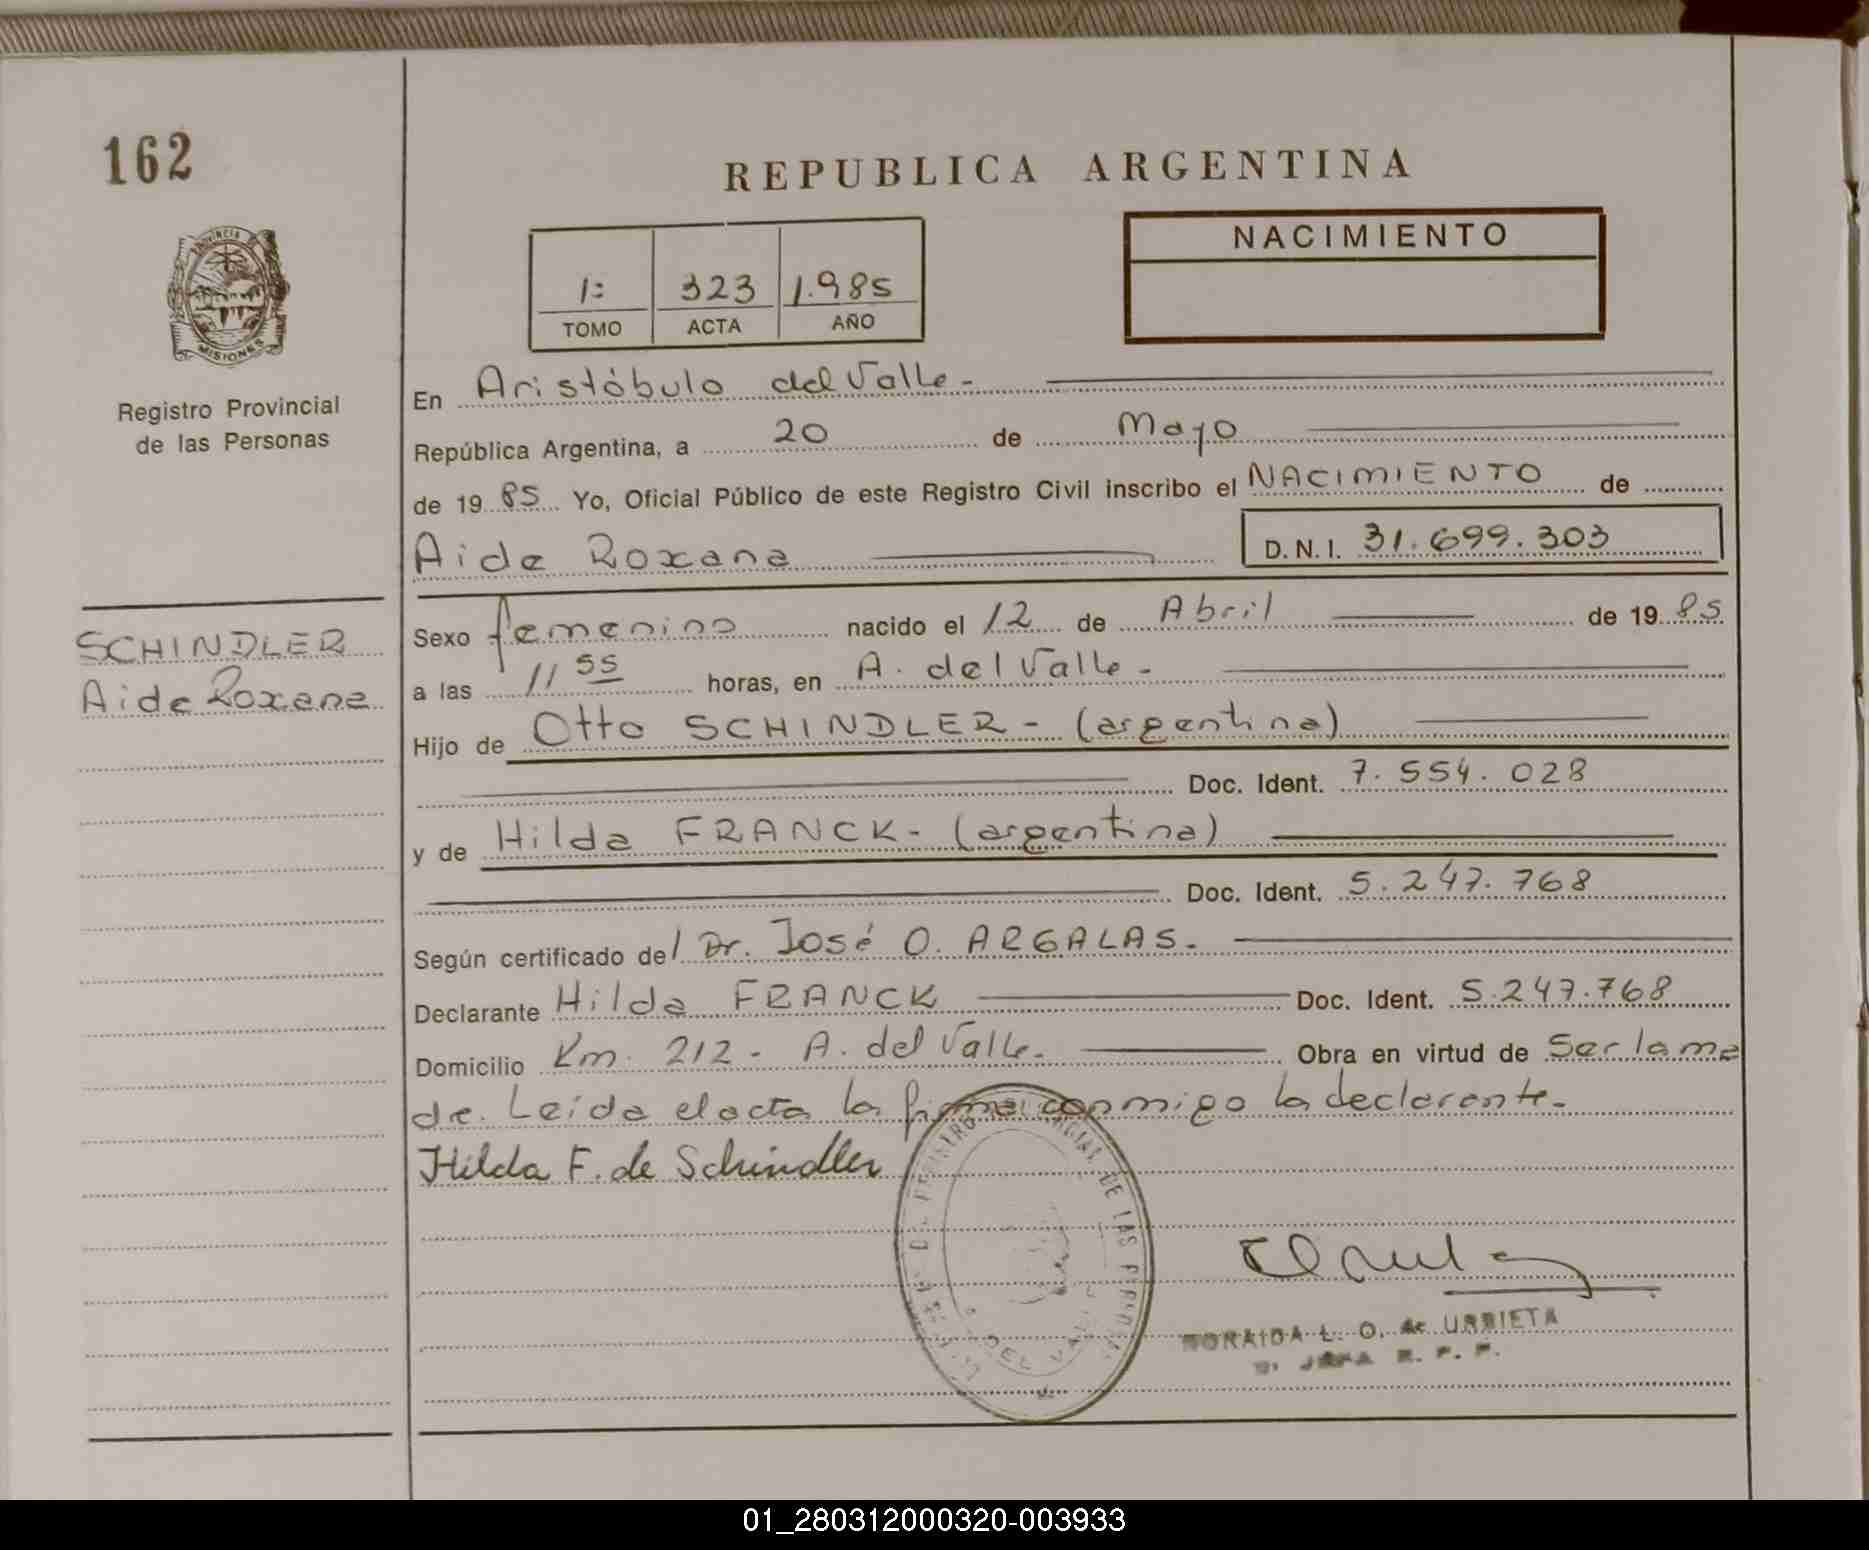 162
REPUBLICA ARGENTINA
PROVINCIA
MISIONES
Registro Provincial
de las Personas
1:
323
1.985
TOMO
ACTA
AÑO
NACIMIENTO
En Aristóbulo del Valle -
República Argentina, a 20 de Mayo
de 19 85 Yo, Oficial Público de este Registro Civil inscribo el NACIMIENTO de
Aide Roxana
D. N. I. 31.699.303
SCHINDLER
Aide Roxana
Sexo femenino nacido el 12 de Abril de 19 85
a las 11 55 horas, en A. del Valle -
Hijo de Otto SCHINDLER - (argentina)
Doc. Ident. 7.554.028
y de Hilda FRANCK - (argentina)
Doc. Ident. 5.247.768
Según certificado del Dr. José O. ARGALAS.
Declarante Hilda FRANCK Doc. Ident. 5.247.768
Domicilio Km. 212 - A. del Valle. Obra en virtud de Ser la ma
dre. Leída el acta la firma conmigo la declarante.
Hilda F. de Schindler
DE LAS
DEL VALLE
L. O. de URRIETA
JEFA R. P. P.
01_280312000320-003933